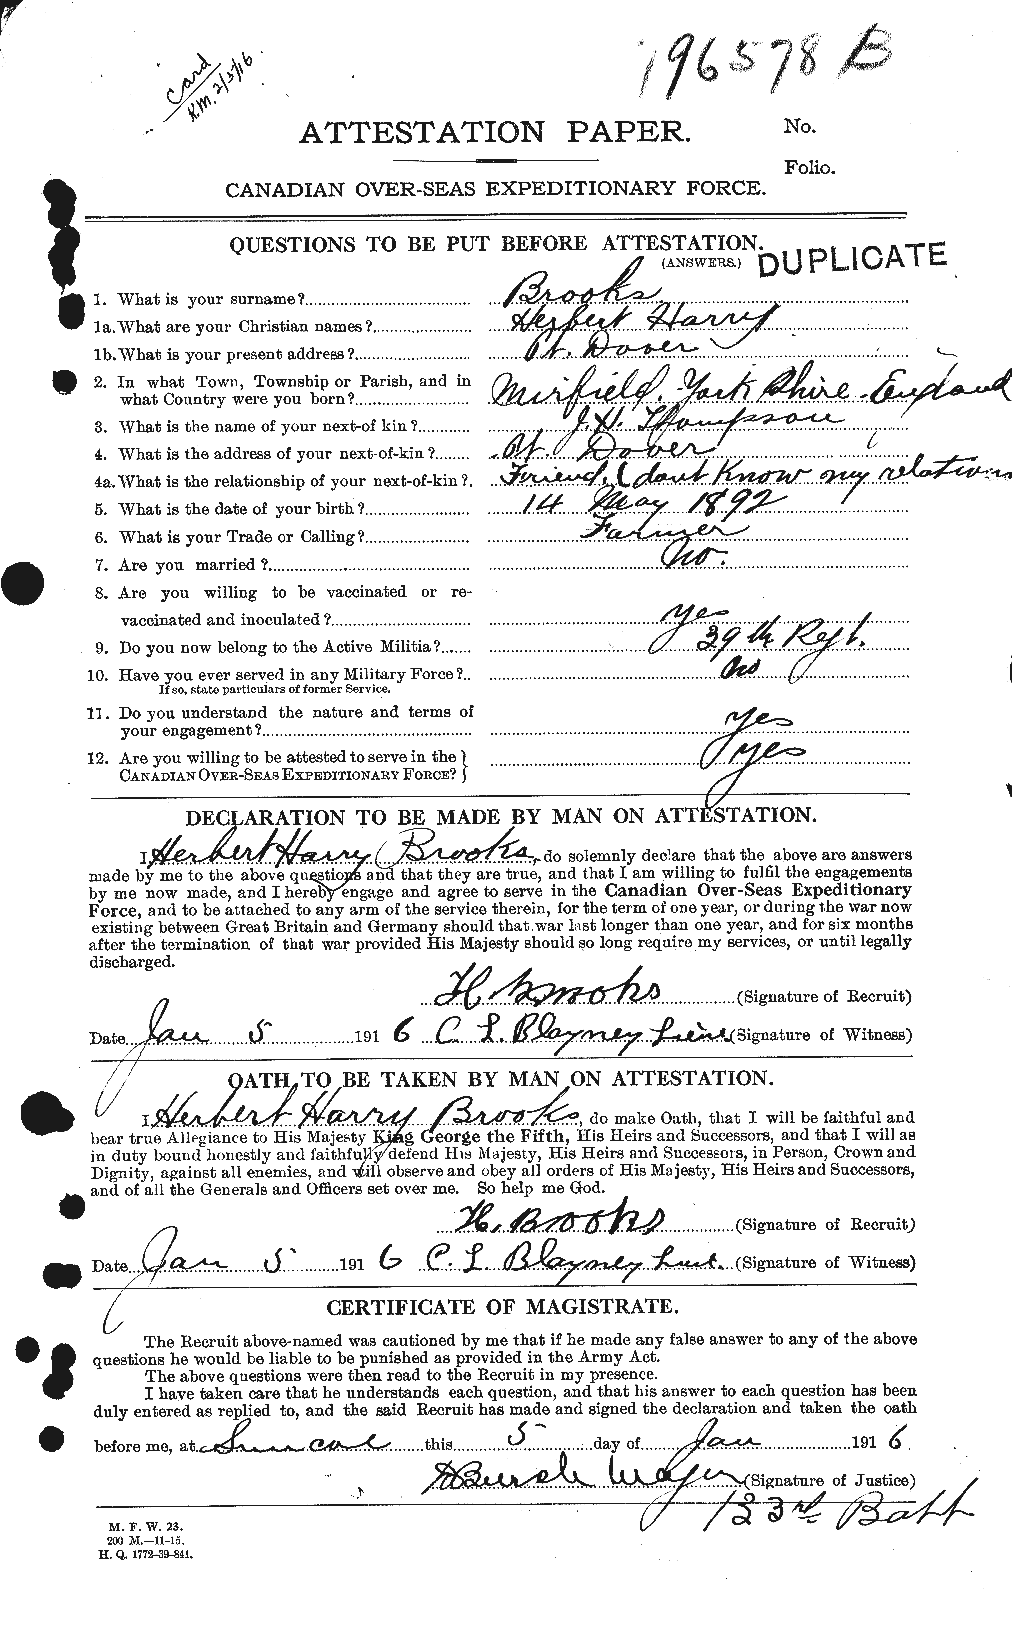 card
K.M. 2/3/16
196578 B
ATTESTATION PAPER.
No.
Folio.
CANADIAN OVER-SEAS EXPEDITIONARY FORCE.
QUESTIONS TO BE PUT BEFORE ATTESTATION.
(ANSWERS.)
DUPLICATE
1. What is your surname? Brooks
1a. What are your Christian names? Herbert Harry
1b. What is your present address? Pt. Dover
2. In what Town, Township or Parish, and in
what Country were you born? Mirfield, York Shire - England
3. What is the name of your next-of kin? J. H. Thompson
4. What is the address of your next-of-kin? Pt. Dover
4a. What is the relationship of your next-of-kin? Friend, (dont know my relations
5. What is the date of your birth? 14 May 1892
6. What is your Trade or Calling? Farmer
7. Are you married? No.
8. Are you willing to be vaccinated or re-
vaccinated and inoculated? yes
9. Do you now belong to the Active Militia? 39th Regt.
10. Have you ever served in any Military Force? No
If so, state particulars of former Service.
11. Do you understand the nature and terms of
your engagement? yes
12. Are you willing to be attested to serve in the
CANADIAN OVER-SEAS EXPEDITIONARY FORCE? } yes
DECLARATION TO BE MADE BY MAN ON ATTESTATION.
I Herbert Harry Brooks, do solemnly declare that the above are answers
made by me to the above questions and that they are true, and that I am willing to fulfil the engagements
by me now made, and I hereby engage and agree to serve in the Canadian Over-Seas Expeditionary
Force, and to be attached to any arm of the service therein, for the term of one year, or during the war now
existing between Great Britain and Germany should that war last longer than one year, and for six months
after the termination of that war provided His Majesty should so long require my services, or until legally
discharged.
H. Brooks (Signature of Recruit)
Date Jan 5 1916 C. L. Blayney Lieut (Signature of Witness)
OATH TO BE TAKEN BY MAN ON ATTESTATION.
I Herbert Harry Brooks, do make Oath, that I will be faithful and
bear true Allegiance to His Majesty King George the Fifth, His Heirs and Successors, and that I will as
in duty bound honestly and faithfully defend His Majesty, His Heirs and Successors, in Person, Crown and
Dignity, against all enemies, and will observe and obey all orders of His Majesty, His Heirs and Successors,
and of all the Generals and Officers set over me. So help me God.
H. Brooks (Signature of Recruit)
Date Jan 5 1916 C. L. Blayney Lieut. (Signature of Witness)
CERTIFICATE OF MAGISTRATE.
The Recruit above-named was cautioned by me that if he made any false answer to any of the above
questions he would be liable to be punished as provided in the Army Act.
The above questions were then read to the Recruit in my presence.
I have taken care that he understands each question, and that his answer to each question has been
duly entered as replied to, and the said Recruit has made and signed the declaration and taken the oath
before me, at Simcoe this 5 day of Jan 1916
Major (Signature of Justice)
133rd Batt
M. F. W. 23.
200 M.—11-15.
H. Q. 1772-39-841.